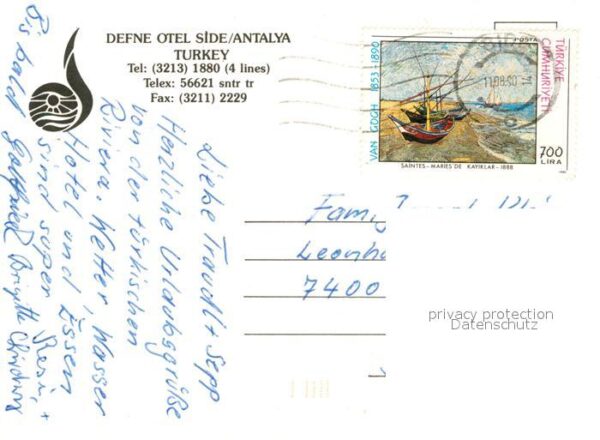 DEFNE OTEL SİDE/ANTALYA
TURKEY
Tel: (3213) 1880 (4 lines)
Telex: 56621 sntr tr
Fax: (3211) 2229
POSTA
TÜRKİYE
CUMHURİYETİ
VAN GOGH 1853-1890
11.08.90
SAINTES-MARIES DE KAYIKLAR-1888
700
LIRA
Liebe Traudl + Sepp
Herzliche Urlaubsgrüße
von der türkischen
Riviera. Wetter, Wasser
Hotel und Essen
sind super
Bis bald
Resi +
Gottfried Brigitte
Fam
Leonh
7400
privacy protection
Datenschutz